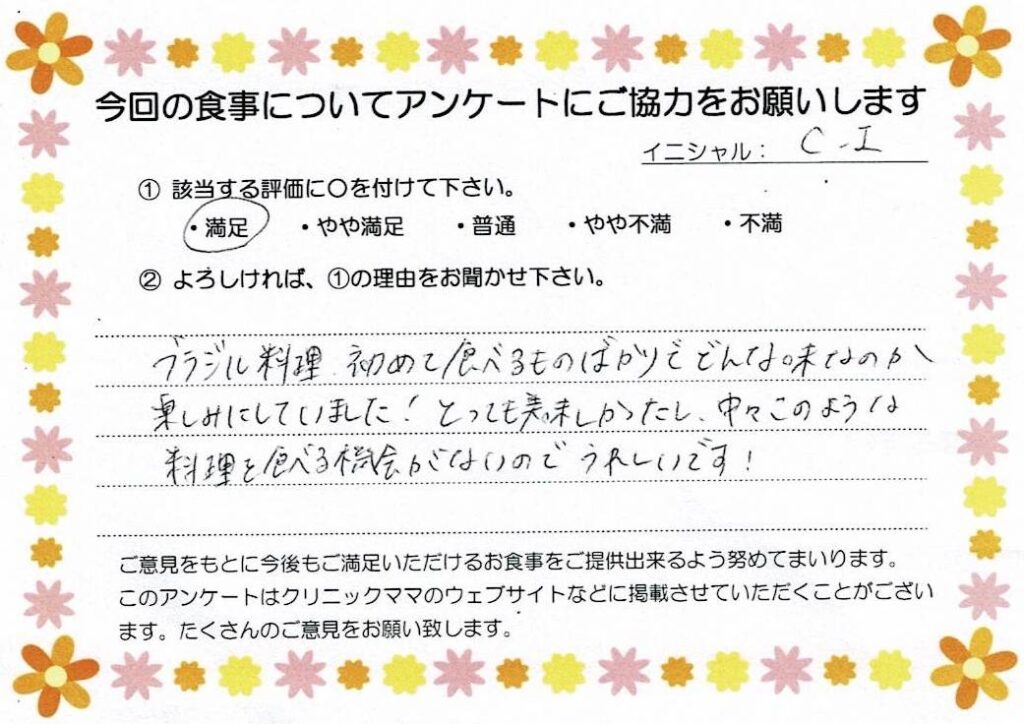 今回の食事についてアンケートにご協力をお願いします
イニシャル： C-I
① 該当する評価に〇を付けて下さい。
・満足 ・やや満足 ・普通 ・やや不満 ・不満
② よろしければ、①の理由をお聞かせ下さい。
ブラジル料理、初めて食べるものばかりでどんな味なのか
楽しみにしていました！とっても美味しかったし、中々このような
料理を食べる機会がないのでうれしいです！
ご意見をもとに今後もご満足いただけるお食事をご提供出来るよう努めてまいります。
このアンケートはクリニックママのウェブサイトなどに掲載させていただくことがござい
ます。たくさんのご意見をお願い致します。